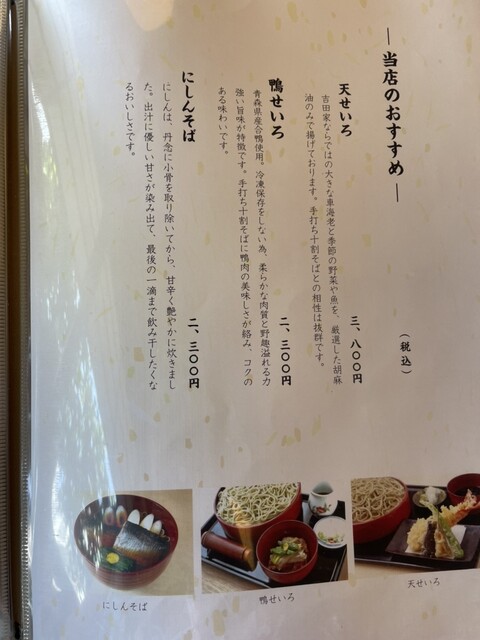 ― 当店のおすすめ ―
(税込)
天せいろ 三、八〇〇円
吉田家ならではの大きな車海老と季節の野菜や魚を、厳選した胡麻
油のみで揚げております。手打ち十割そばとの相性は抜群です。
鴨せいろ 二、三〇〇円
青森県産合鴨使用。冷凍保存をしない為、柔らかな肉質と野趣溢れる力
強い旨味が特徴です。手打ち十割そばに鴨肉の美味しさが絡み、コクの
ある味わいです。
にしんそば 二、三〇〇円
にしんは、丹念に小骨を取り除いてから、甘辛く艶やかに炊きまし
た。出汁に優しい甘さが染み出て、最後の一滴まで飲み干したくな
るおいしさです。
にしんそば
鴨せいろ
天せいろ